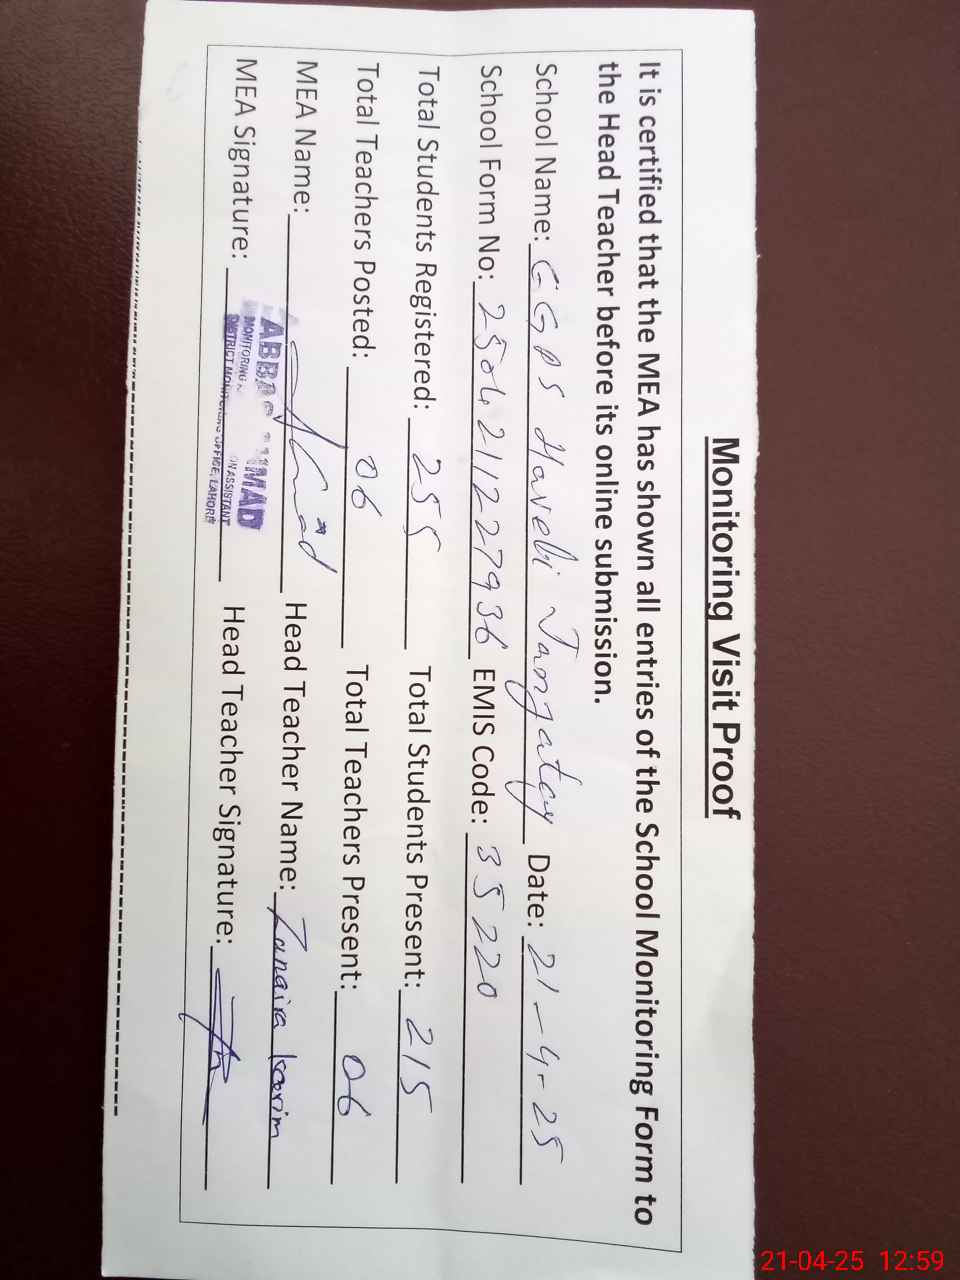 Monitoring Visit Proof
It is certified that the MEA has shown all entries of the School Monitoring Form to
the Head Teacher before its online submission.
School Name: GGPS Haveli Date: 21-4-25
School Form No: 2504211227936 EMIS Code: 35220
Total Students Registered: 255 Total Students Present: 215
Total Teachers Posted: 06 Total Teachers Present: 06
MEA Name: Head Teacher Name: Zunaira
MEA Signature: Head Teacher Signature:
MONITORING ASSISTANT
DISTRICT MONITORING OFFICE, LAHORE
21-04-25 12:59